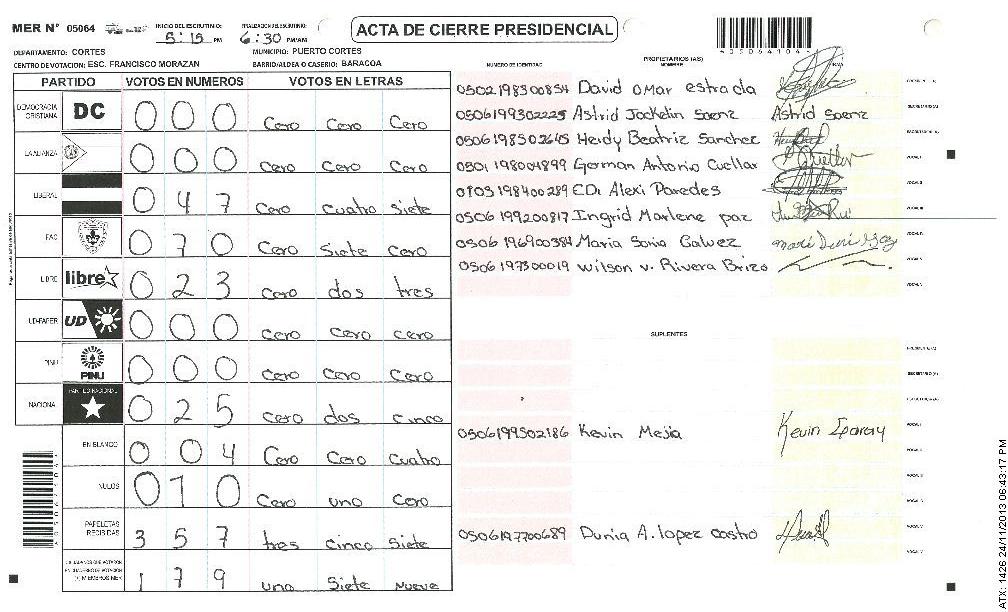 MER N° 05064 INICIO DEL ESCRUTINIO: 5:15 PM FINALIZACION DEL ESCRUTINIO: 6:30 PM/AM ACTA DE CIERRE PRESIDENCIAL
DEPARTAMENTO: CORTES MUNICIPIO: PUERTO CORTES
CENTRO DE VOTACION: ESC. FRANCISCO MORAZAN BARRIO/ALDEA O CASERIO: BARACOA
PARTIDO VOTOS EN NUMEROS VOTOS EN LETRAS
DEMOCRACIA CRISTIANA DC 0 0 0 Cero Cero Cero
LA ALIANZA 0 0 0 Cero Cero Cero
LIBERAL 0 4 7 Cero Cuatro Siete
PAC 0 7 0 Cero Siete Cero
LIBRE libre 0 2 3 Cero dos tres
UD-FAPER UD 0 0 0 Cero Cero Cero
PINU PINU 0 0 0 Cero Cero Cero
NACIONAL PARTIDO NACIONAL 0 2 5 Cero dos Cinco
EN BLANCO 0 0 4 Cero Cero Cuatro
NULOS 0 1 0 Cero uno Cero
PAPELETAS RECIBIDAS 3 5 7 tres Cinco Siete
1 7 9 uno Siete nueve
NUMERO DE IDENTIDAD PROPIETARIOS (AS) NOMBRE FIRMA
0502198300854 David Omar estrada
0506199302225 Astrid Jackelin Saenz Astrid Saenz
0506198502665 Heidy Beatriz Sanchez
0501198004899 German Antonio Cuellar
CDi Alexi Paredes
0506199200817 Ingrid Marlene paz
0506196900384 Maria Sonia Galvez
0506197300019 Wilson v. Rivera Brizo
SUPLENTES
0506199502186 Kevin Mejia Kevin
0506197700689 Dunia A. lopez castro
ATX: 1426 24/11/2013 06:43:17 PM